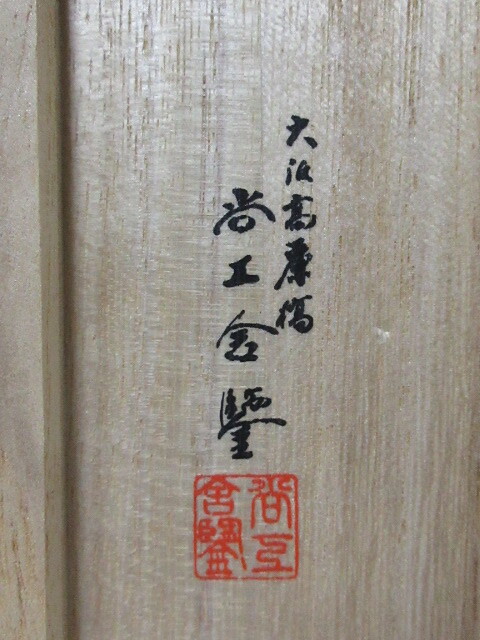 大阪高麗橋
尚工舎鑒
尚工
舎鑒